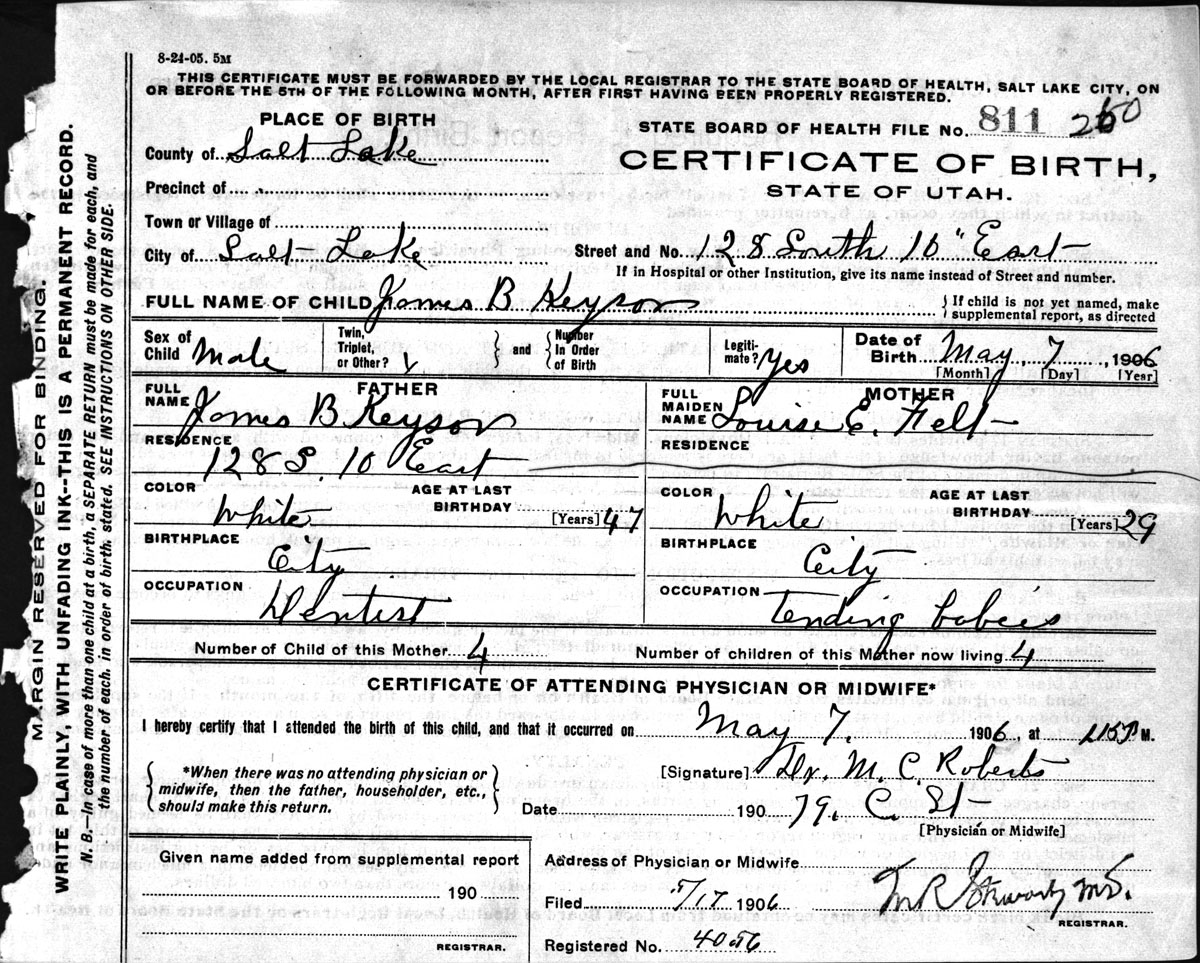 8-24-05. 5M
THIS CERTIFICATE MUST BE FORWARDED BY THE LOCAL REGISTRAR TO THE STATE BOARD OF HEALTH, SALT LAKE CITY, ON
OR BEFORE THE 5TH OF THE FOLLOWING MONTH, AFTER FIRST HAVING BEEN PROPERLY REGISTERED.
PLACE OF BIRTH
STATE BOARD OF HEALTH FILE No. 811
County of Salt Lake
CERTIFICATE OF BIRTH,
STATE OF UTAH.
Precinct of
Town or Village of
City of Salt Lake Street and No. 128 South 10" East
If in Hospital or other Institution, give its name instead of Street and number.
FULL NAME OF CHILD James B Keysor
{If child is not yet named, make
supplemental report, as directed
Sex of Child Male
Twin, Triplet, or Other?
and
Number In Order of Birth
Legiti- mate? Yes
Date of Birth May 7 1906
[Month] [Day] [Year]
FATHER
FULL NAME James B Keysor
MOTHER
FULL MAIDEN NAME Louise E. Felt
RESIDENCE
128 S. 10 East
RESIDENCE
COLOR White
AGE AT LAST BIRTHDAY [Years] 47
COLOR White
AGE AT LAST BIRTHDAY [Years] 29
BIRTHPLACE City
BIRTHPLACE City
OCCUPATION Dentist
OCCUPATION Tending babies
Number of Child of this Mother 4
Number of children of this Mother now living 4
CERTIFICATE OF ATTENDING PHYSICIAN OR MIDWIFE*
I hereby certify that I attended the birth of this child, and that it occurred on May 7. 1906, at M.
*When there was no attending physician or
midwife, then the father, householder, etc.,
should make this return.
[Signature] Dr. M. C. Roberts
Date 190 79. C. St
[Physician or Midwife]
Given name added from supplemental report
190
REGISTRAR.
Address of Physician or Midwife
Filed 5/17 1906
REGISTRAR.
Registered No. 4056
MARGIN RESERVED FOR BINDING.
WRITE PLAINLY, WITH UNFADING INK--THIS IS A PERMANENT RECORD.
N.B.--In case of more than one child at a birth, a SEPARATE RETURN must be made for each, and
the number of each, in order of birth, stated. SEE INSTRUCTIONS ON OTHER SIDE.